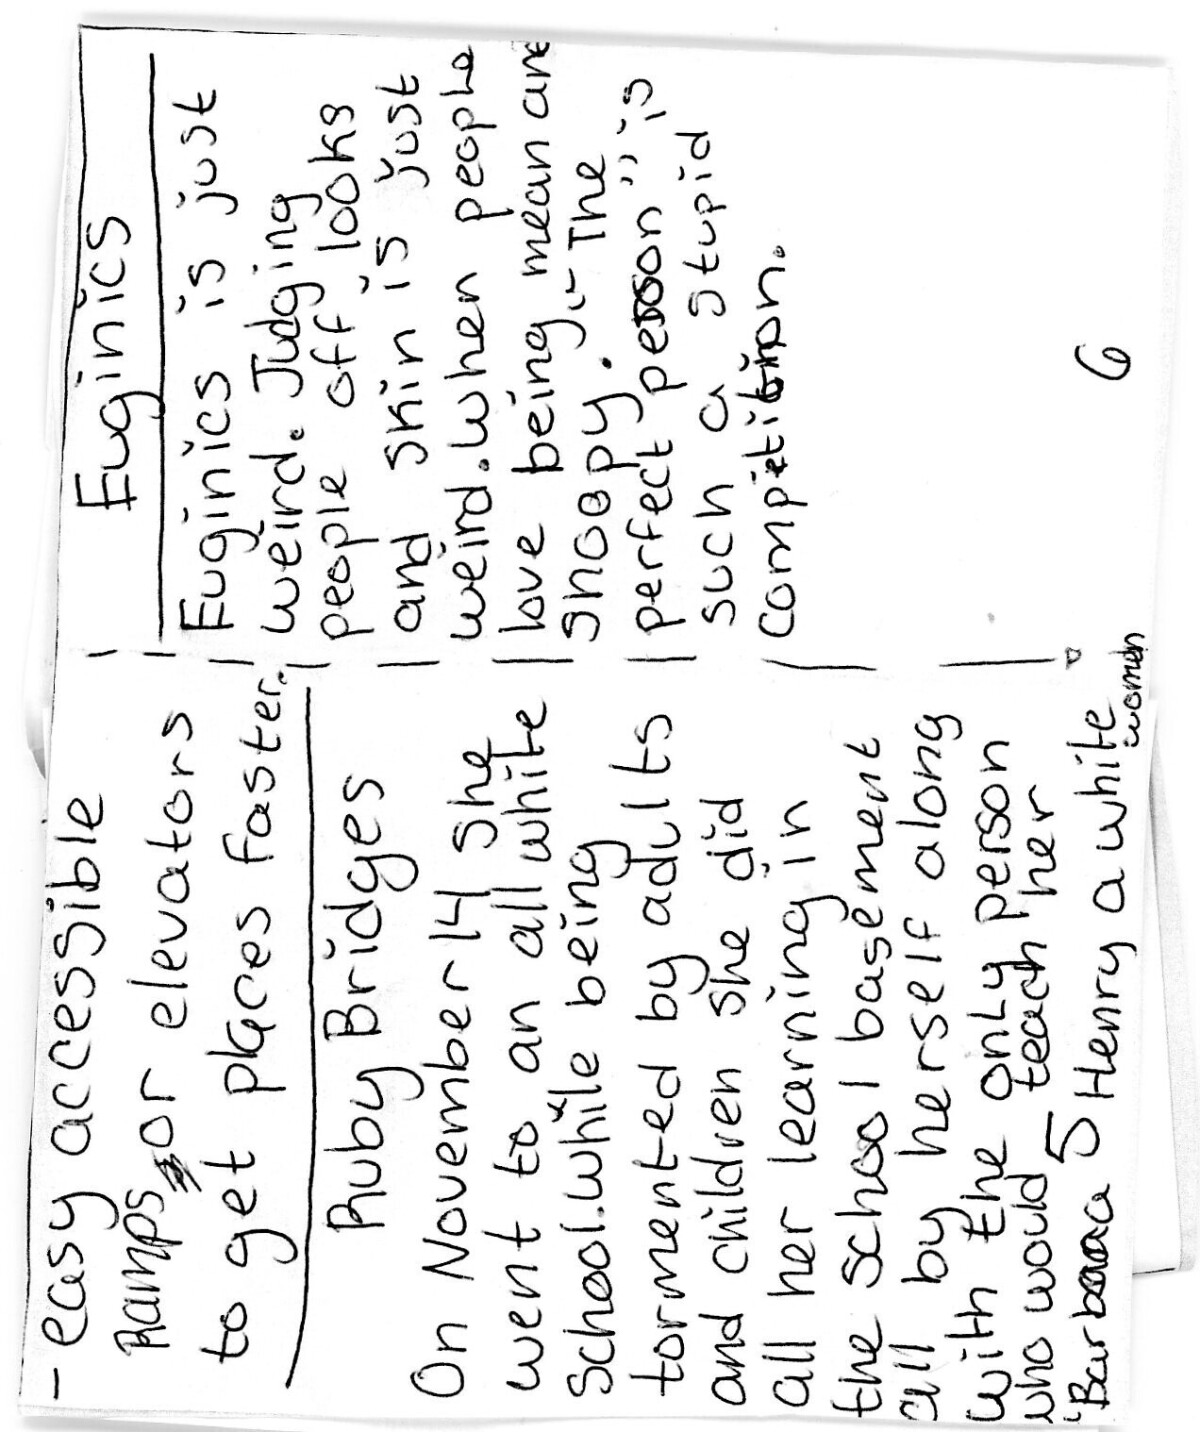 - easy accessible
Ramps or elevators
to get places faster.
Ruby Bridges
On November 14 she
went to an all white
School. while being
tormented by adults
and children she did
all her learning in
the school basement
all by herself along
with the only person
who would teach her
Barbara Henry a white
women
5
Euginics
Euginics is just
weird. Judging
people off looks
and skin is just
weird. when people
love being mean and
snoopy. "The
perfect person" is
such a stupid
competition.
6